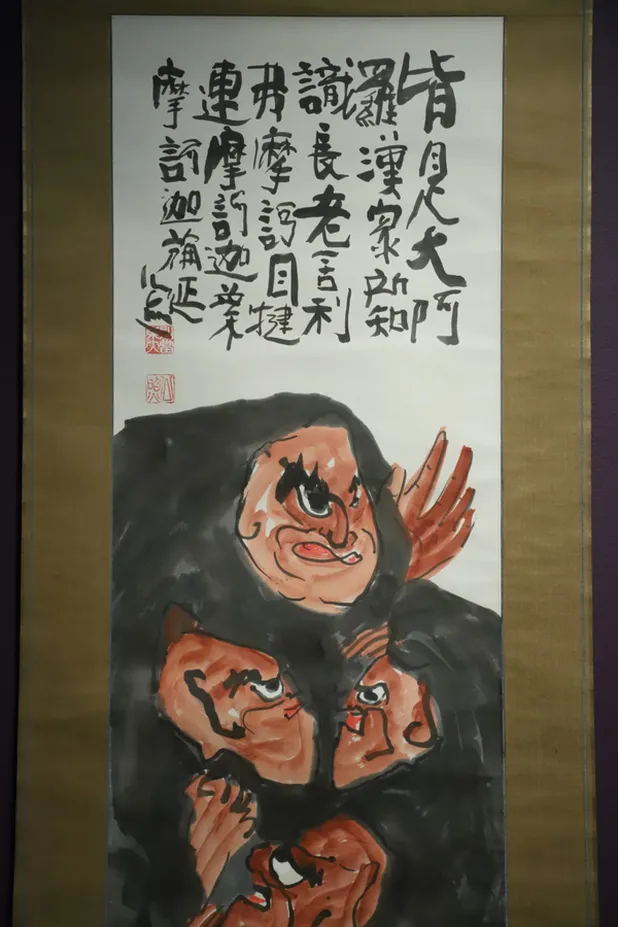 皆是大阿
羅漢衆所知
識長老舎利
弗摩訶目犍
連摩訶迦葉
摩訶迦旃延